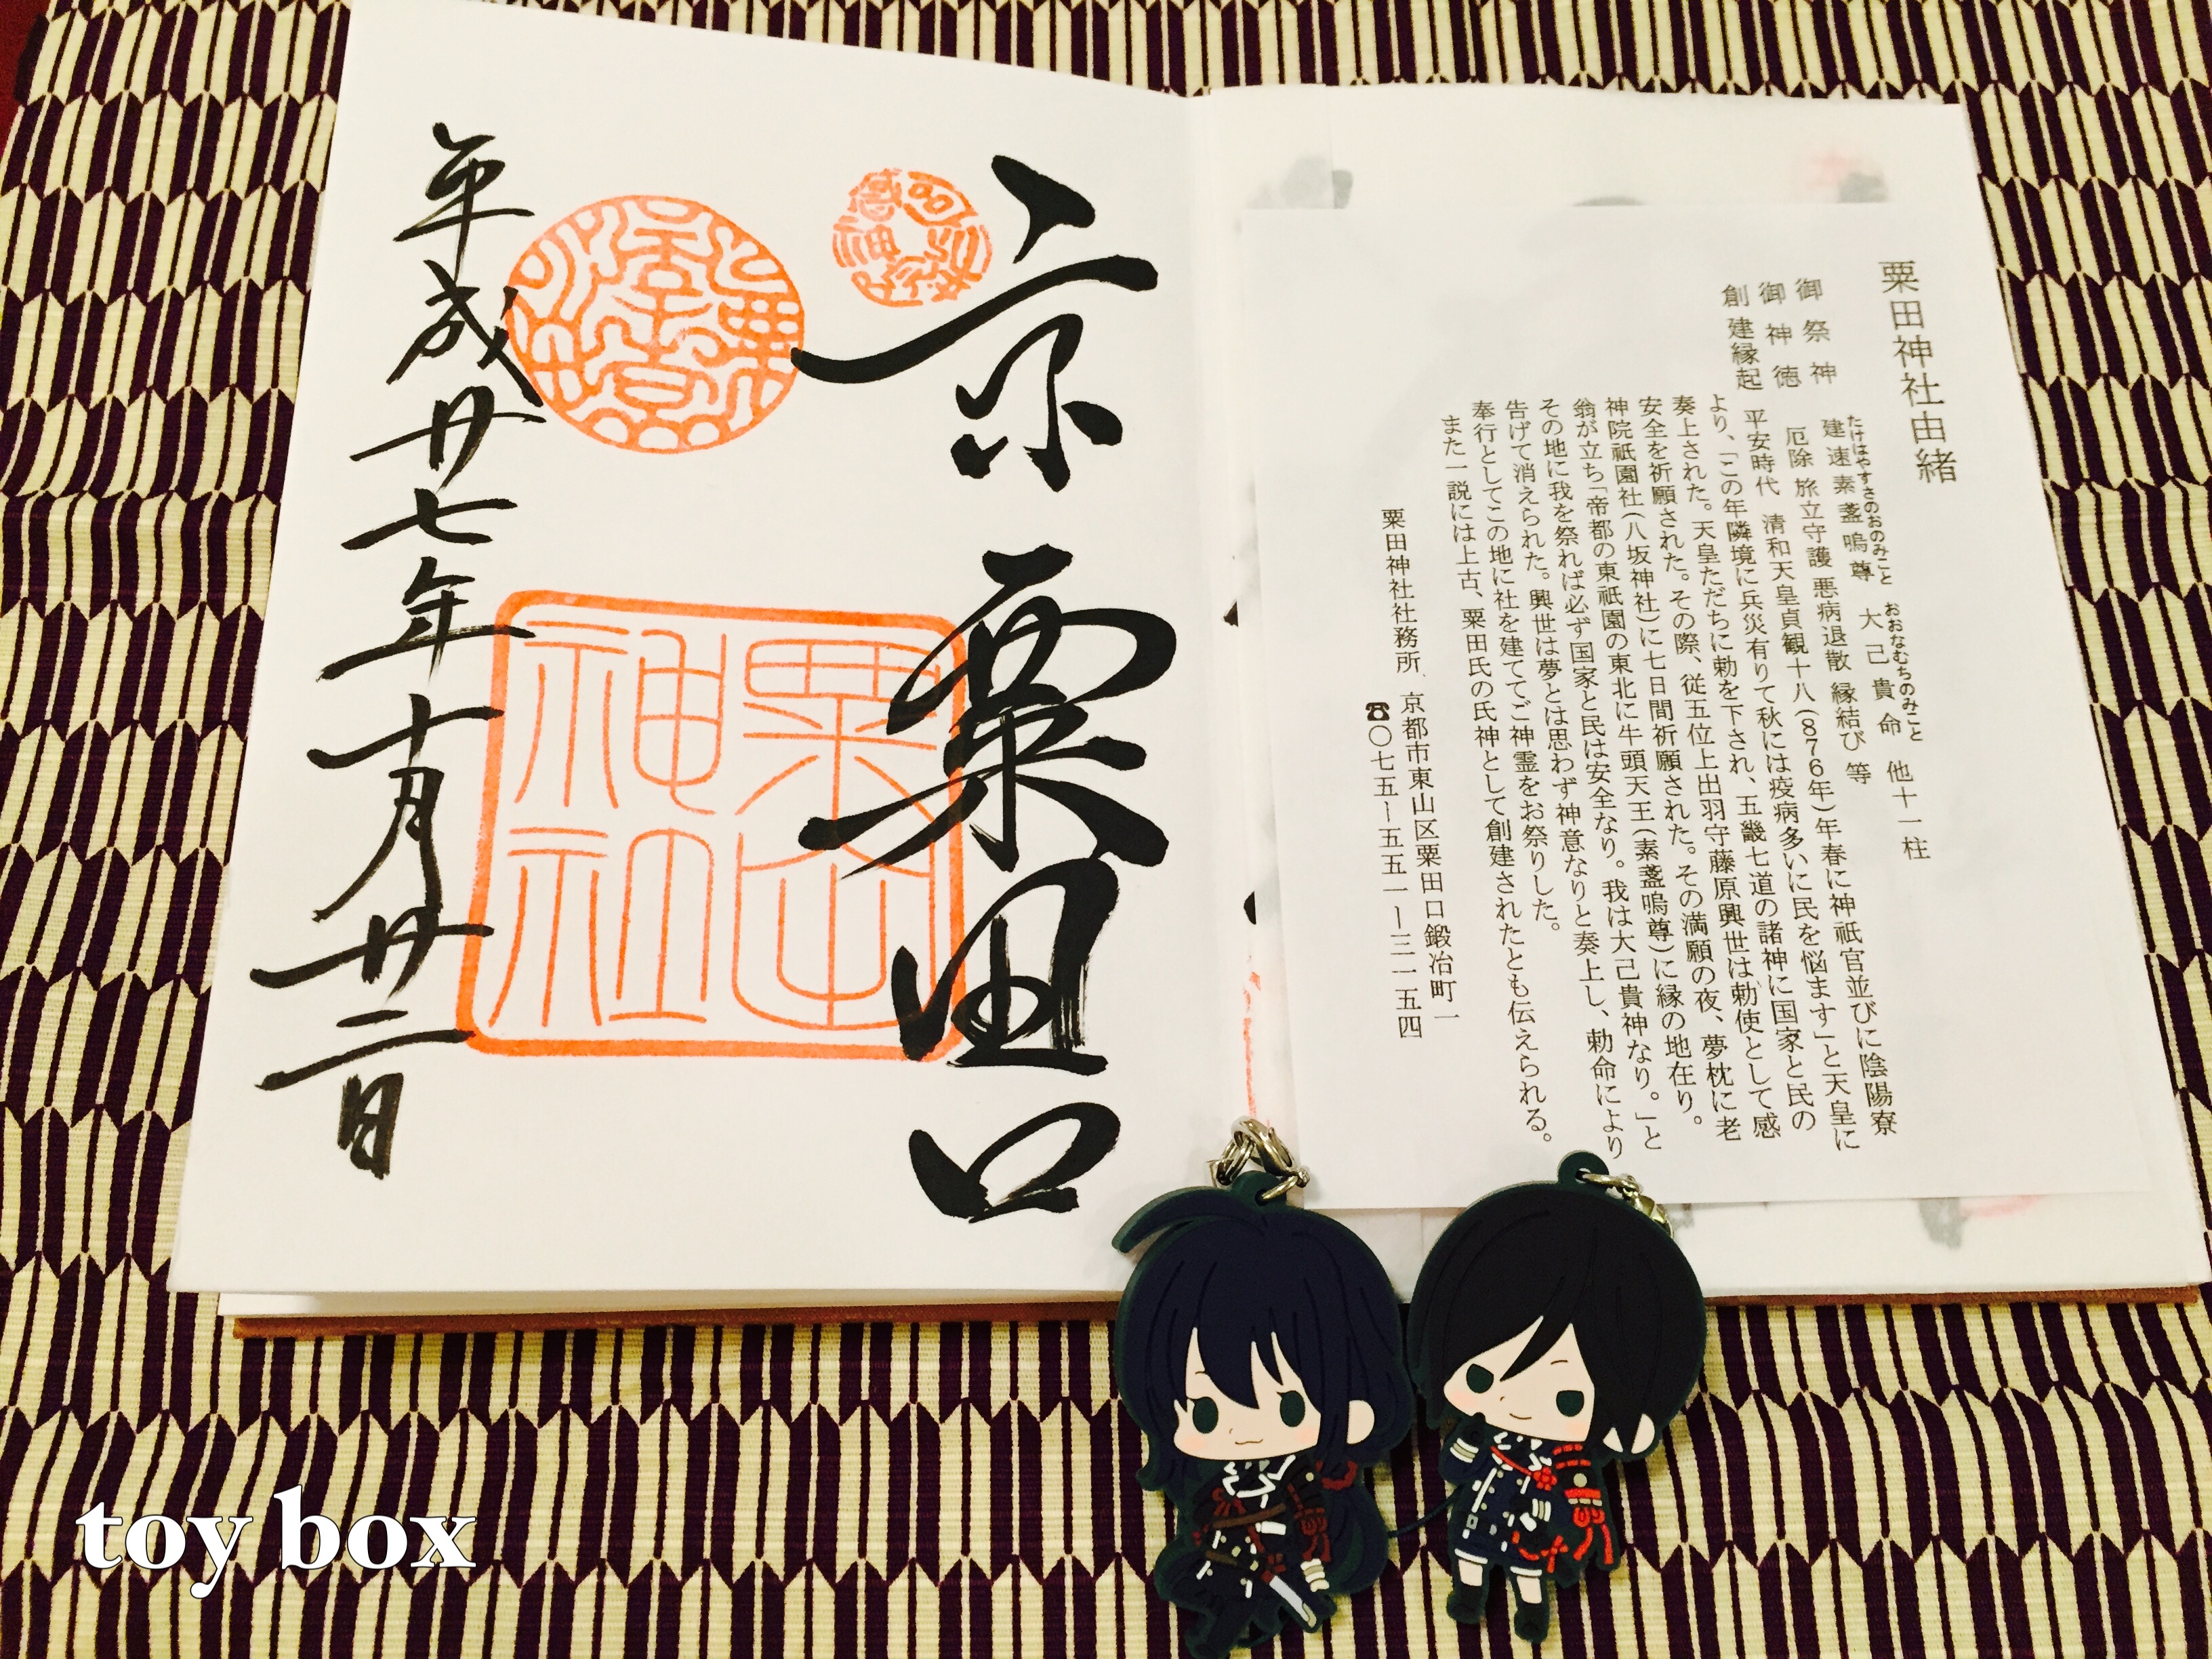 粟田神社由緒
御祭神 建速素盞嗚尊 大己貴命 他十一柱
たけはやすさのおのみこと おおなむちのみこと
御神徳 厄除 旅立守護 悪病退散 縁結び 等
創建縁起 平安時代 清和天皇貞観十八(876年)年春に神祇官並びに陰陽寮
より、「この年隣境に兵災有りて秋には疫病多いに民を悩ます」と天皇に
奏上された。天皇ただちに勅を下され、五畿七道の諸神に国家と民の
安全を祈願された。その際、従五位上出羽守藤原興世は勅使として感
神院祇園社(八坂神社)に七日間祈願された。その満願の夜、夢枕に老
翁が立ち「帝都の東祇園の東北に牛頭天王(素盞嗚尊)に縁の地在り。
その地に我を祭れば必ず国家と民は安全なり。我は大己貴神なり。」と
告げて消えられた。興世は夢とは思わず神意なりと奏上し、勅命により
奉行としてこの地に社を建ててご神霊をお祭りした。
また一説には上古、粟田氏の氏神として創建されたとも伝えられる。
粟田神社社務所 京都市東山区粟田口鍛冶町一
☎〇七五ー五五一ー三一五四
京 粟田口
粟田
神社
平成廿七年十月廿二日
toy box